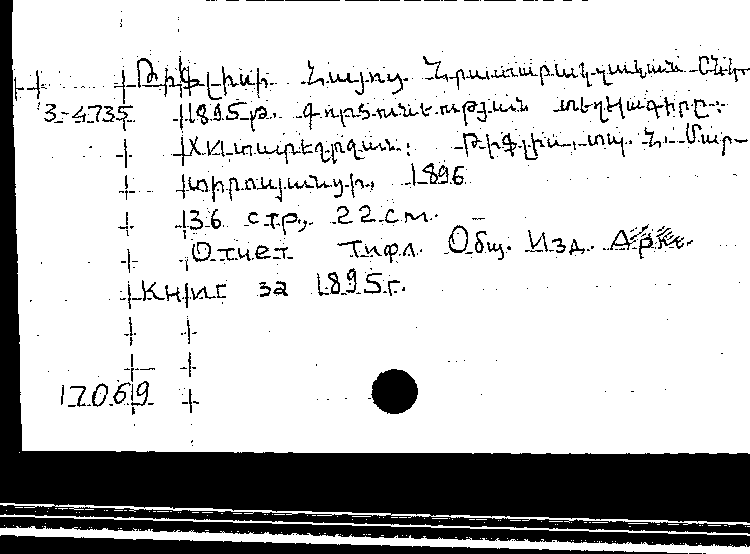 Թիֆլիսի Հայոց Հրատարակչական Ընկ.
3-4735 1895թ. գործունեության տեղեկագիրը:
XVI տարեշրջան: Թիֆլիս, տպ. Հ. Մար-
տիրոսյանցի, 1896
36 стр., 22 см.
Отчет Тифл. Общ. Изд. Арм.
книг за 1895г.
17069